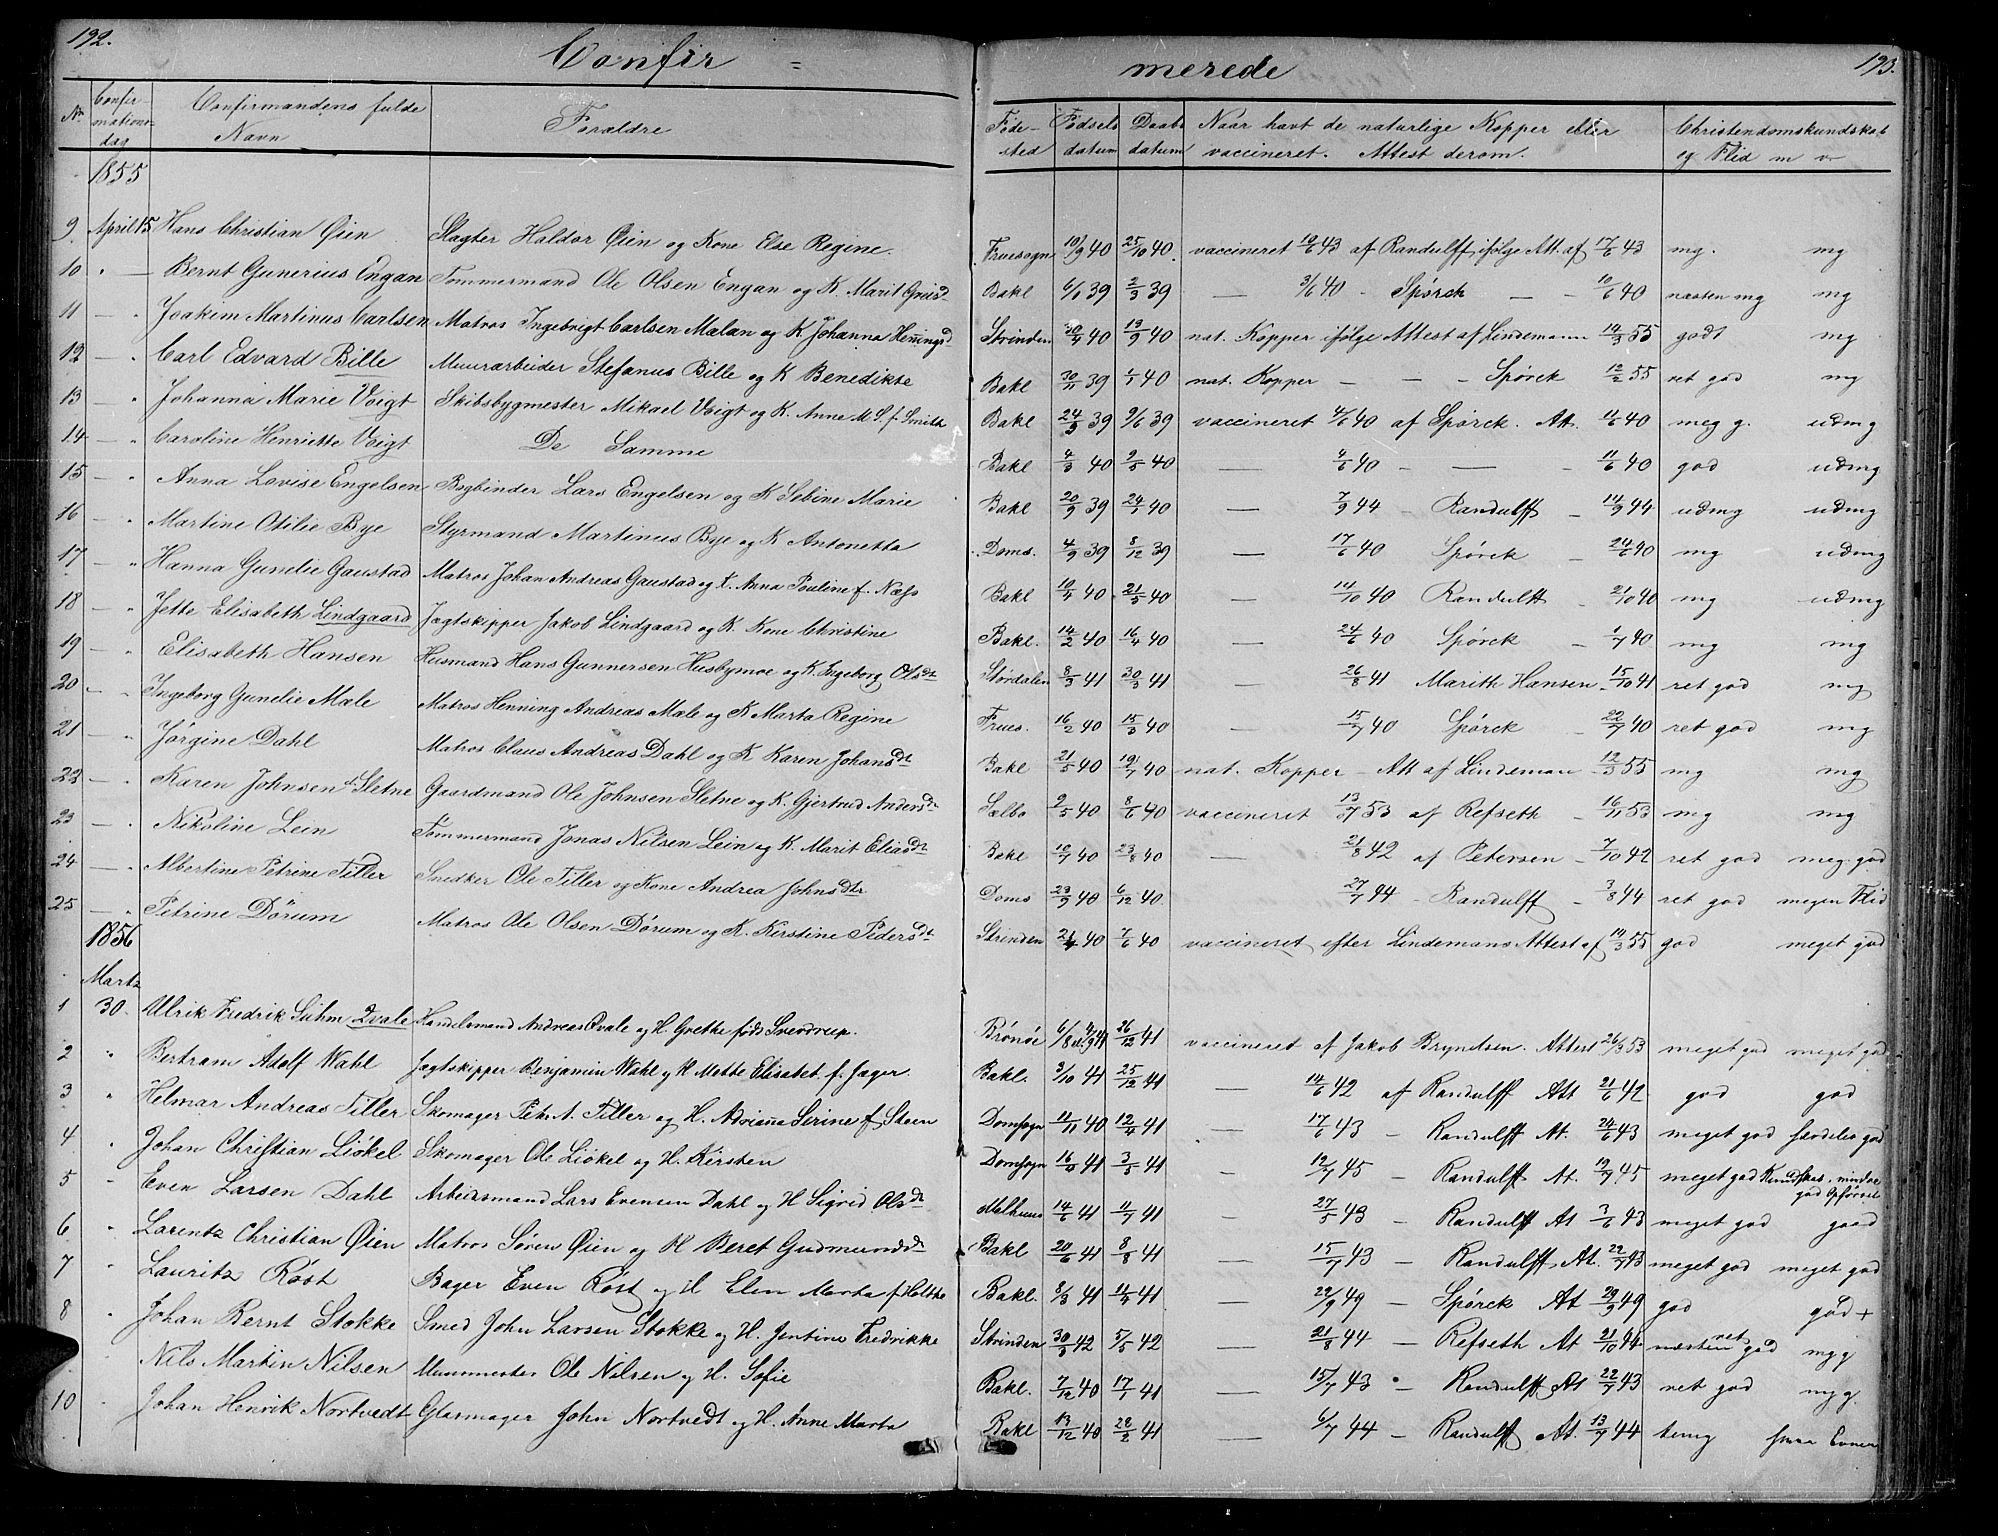 192.
Confir = merede
193.
No Confirmationsdag Confirmandens fulde Navn Forældre Fødested Fødselsdatum Daabsdatum Naar havt de naturlige Kopper eller vaccineret. Attest derom. Christendomskundskab og Flid m v
1855
9 April 15 Hans Christian Øien Slagter Haldor Øien og Kone Else Regine. Fruesogn 10/9 40 25/10 40. vaccineret 10/6 43 af Randulff ifølge Att. af 17/6 43 mg. mg
10 " — Bernt Gunerius Engan Tømmermand Ole Olsen Engan og K. Marit Bakl 6/1 39 2/3 39 — 3/6 40 - Spørck — — 10/6 40 næsten mg mg
11 — " Joakim Martinus Carlsen Matros Ingebrigt Carlsen Mælan og K Johanna Henningsd Strinden 30/4 40 13/9 40 nat. Kopper ifølge Attest af Lindemann 14/3 55 godt mg
12 — " Carl Edvard Bille Muurarbeider Stefanus Bille og K Benedikte Bakl 30/11 39 1/1 40 nat. Kopper — — - Spørck 12/2 55 ret god mg
13 — " Johanna Marie Voigt Skibsbygmester Mikael Voigt og K. Anne M. S. f. Smith Bakl 24/3 39 9/6 39 vaccineret 4/6 40 af Spørck. Att. 11/6 40 meg g. udmg
14 — " Caroline Henriette Voigt De Samme Bakl 4/3 40 2/5 40 — 4/6 40 - — - 11/6 40 god udmg
15 — " Anna Lovise Engelsen Bogbinder Lars Engelsen og K Sebine Marie Bakl 20/9 39 24/1 40 — 7/9 44 - Randulff - 14/9 44 udmg udmg
16 — " Martine Otilie Bye Styrmand Martinus Bye og K Antonetta Doms. 4/9 39 8/12 39 — 17/6 40 Spørck - 24/6 40 mg udmg
17 — " Hanna Gunelie Gaustad Matros Johan Andreas Gaustad og K. Anna Pauline f. Næss Bakl 10/4 40 21/5 40 — 14/10 40 Randulff - 21/10 40 mg udmg
18 — " Jette Elisabeth Lindgaard Jagtskipper Jakob Lindgaard og K. Kone Christine Bakl. 14/2 40 16/4 40 — 24/6 40 Spørck - 1/7 40 mg mg
19 — " Elisabeth Hansen Husmand Hans Gunnersen Husbymoe og K. Ingeborg Olsdt Størdalen 8/3 41 30/3 41 — 26/8 41 Marith Hansen - 15/10 41 ret god mg
20 — " Ingeborg Gunelie Male Matros Henning Andreas Male og K Marta Regine Frues. 16/2 40 15/3 40 — 15/7 40 Spørck - 22/7 40 ret god mg
21 — " Jørgine Dahl Matros Claus Andreas Dahl og K Karen Johansdt Bakl 21/5 40 19/7 40 nat. Kopper - Att af Lindeman - 12/3 55 mg mg
22 — " Karen Johnsen Sletne Gaardmand Ole Johnsen Sletne og K. Gjertrud Andersdt Sælbo 2/5 40 8/6 40 vaccineret 13/7 53 af Refseth - 16/11 53 mg mg
23 — " Nikoline Lein Tømmermand Jonas Nilsen Lein og K. Marit Eliasdt Bakl 10/7 40 23/8 40 — 21/8 42 af Petersen - 7/10 42 ret god meg. god
24 — " Albertine Petrine Tiller Snedker Ole Tiller og Kone Andrea Johnsdtr Doms 23/9 40 6/12 40. 27/7 44 - Randulff - 3/8 44 ret god megen Flid
25 — " Petrine Dørum Matros Ole Olsen Dørum og K. Kirstine Pedersdt Strinden 21/4 40 7/6 40 vaccineret efter Lindemans Attest af 14/3 55 god meget god
1856
Marts
1 30. Ulrik Fredrik Suhm Qvale Handelsmand Andreas Qvale og H. Grethe född Sverdrup. Brønöe 6/8 41 26/12 41 vaccineret af Jakob Bryndtsen. Attest 26/3 53 meget god meget god
2 " Bertram Adolf Wahl Jagtskipper Benjamin Wahl og H Mette Elisabet f. Jager. Bakl. 3/10 41 25/12 41 — 14/6 42 af Randulff Att 21/6 42 god god
3 " Helmar Andreas Tiller Skomager Pet. A. Tiller og H. Adriana Serine f Steen Domsogn 11/11 40 12/4 41 — 17/6 43 — Randulff At. 24/6 43 meget god særdeles god
4 " Johan Christian Liökel Skomager Ole Liökel og H. Kirsten Domsogn 16/4 41 3/5 41 — 12/7 45 — Randulff At. 19/7 45 meget god Kundskab, mindre god Opførsel
5 " Even Larsen Dahl Arbeidsmand Lars Evensen Dahl og H Sigrid Olsdt Melhuus 14/6 41 11/7 41 — 27/5 43 — Randulff At 3/6 43 meget god good
6 " Larentz Christian Øien Matros Søren Øien og H Beret Gudmundsdt Bakl 20/6 41 8/8 41 — 15/7 43 — Randulff At. 22/7 43 meget god meget god
7 " Lauritz Röst Bager Even Röst og H Elen Marta f Holthe Bakl. 8/3 41 11/4 41 — 22/9 49 — Spørck At 29/9 49 god god +
8 " Johan Bernt Stokke Smed John Larsen Stokke og H. Jentine Fredrikke Strinden 30/3 42 5/5 42 — 21/8 44 — Refseth At 21/10 44 næsten ret god mg g
Nils Martin Nilsen Muurmester Ole Nilsen og H. Sofie Bakl. 7/12 40 17/1 41 — 15/7 43 — Randulff At 22/7 43 ret god mg g.
10 Johan Henrik Nortvedt Glasmager John Nortvedt og H. Anne Marta Bakl 13/12 40 28/2 41 — 6/7 44 — Randulff At. 13/7 44 temg smaa Evner